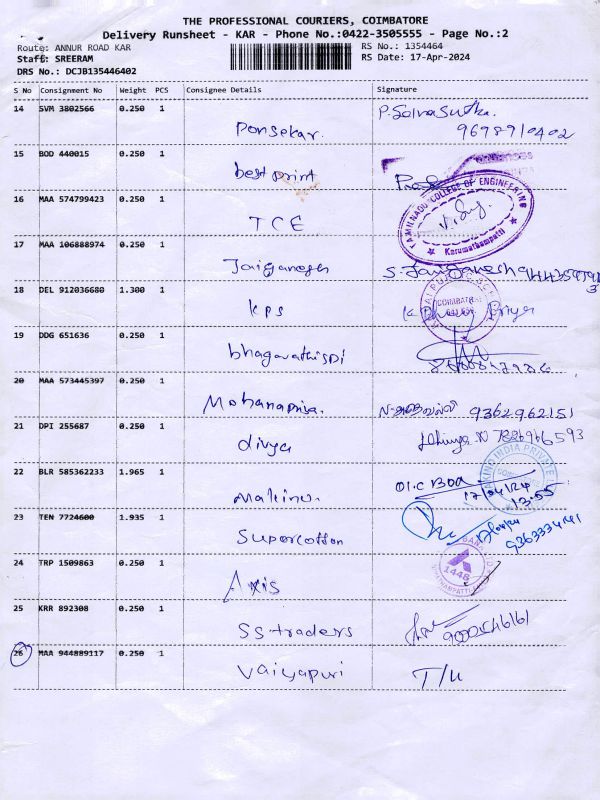 THE PROFESSIONAL COURIERS, COIMBATORE
Delivery Runsheet - KAR - Phone No.:0422-3505555 - Page No.:2
Route: ANNUR ROAD KAR
RS No.: 1354464
Staff: SREERAM
RS Date: 17-Apr-2024
DRS No.: DCJB135446402
S No Consignment No Weight PCS Consignee Details Signature
14 SVM 3802566 0.250 1
Ponsekar.
P. Selva
9698910402
15 BOD 440015 0.250 1
best print
16 MAA 574799423 0.250 1
TCE
TAMILNADU COLLEGE OF ENGINEERING
Karumathampatti
17 MAA 106888974 0.250 1
Jaiganesh
S. Jaiganesh
18 DEL 912036680 1.300 1
KPS
COIMBATORE
Priya
19 DDG 651636 0.250 1
bhagavathi
20 MAA 573445397 0.250 1
Mohanapriya.
9362962151
21 DPI 255687 0.250 1
divya
22 BLR 585362233 1.965 1
Makino.
INDIA PRIVATE
17/04/24
13.55
23 TEN 7724600 1.935 1
Supercotton
24 TRP 1509863 0.250 1
Axis
1448
25 KRR 892308 0.250 1
SS traders
26 MAA 944889117 0.250 1
Vaiyapuri
T/U